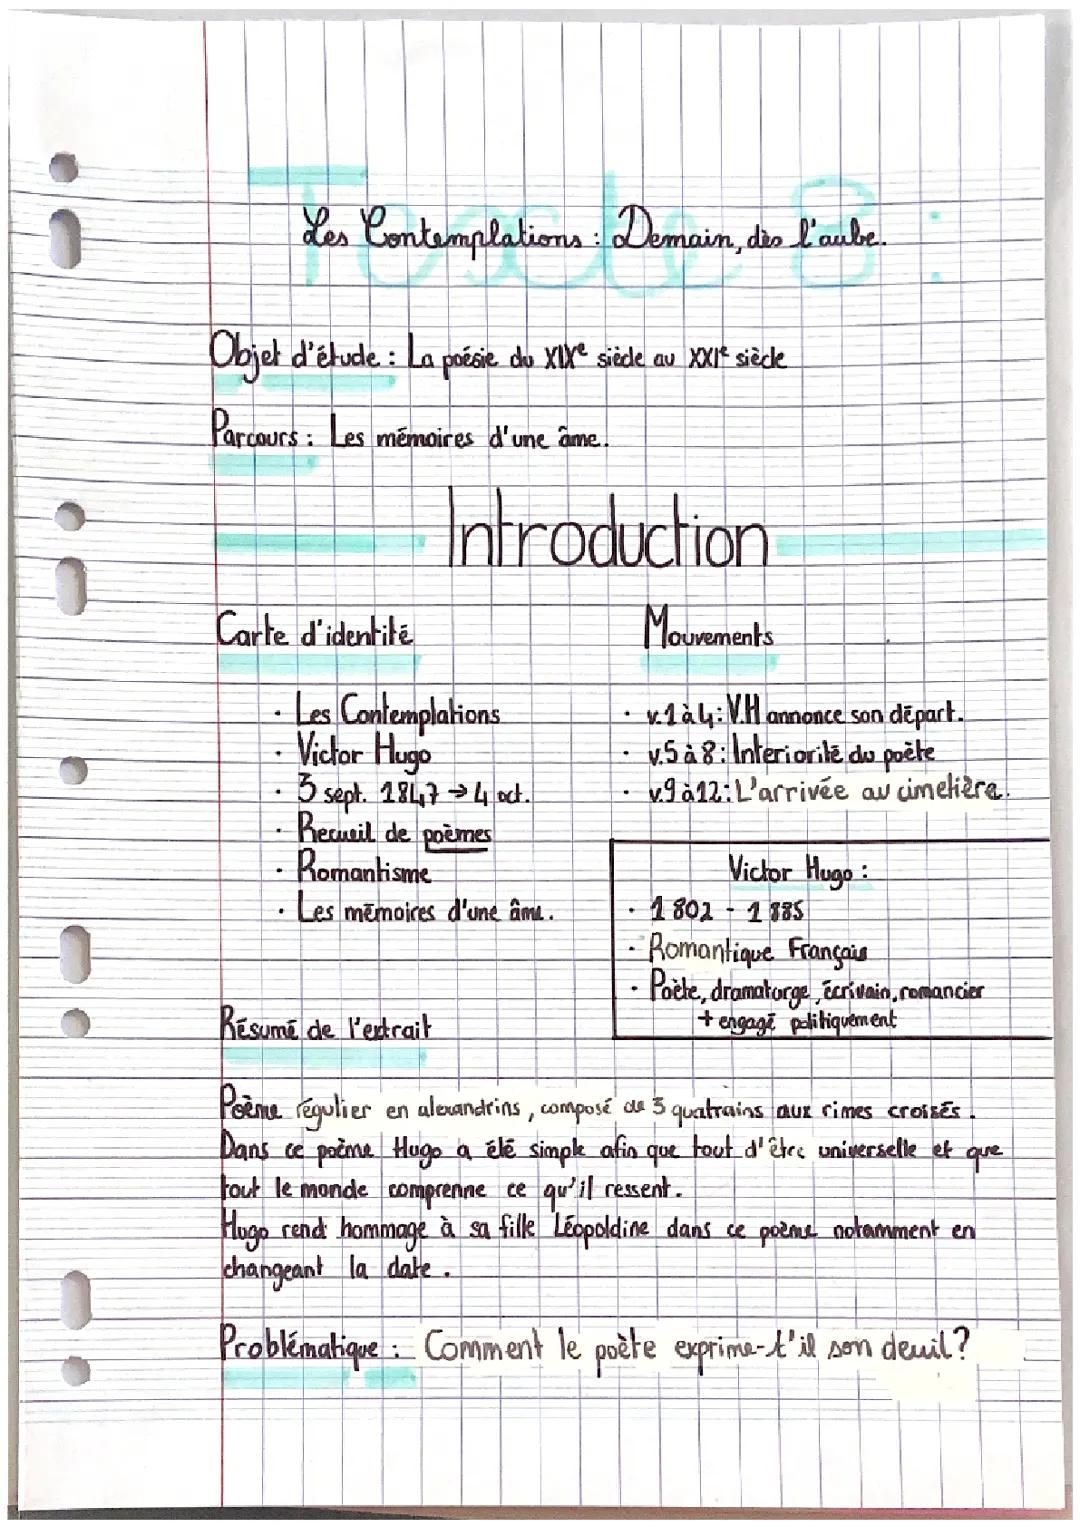 Texte 8:
Les Contemplations : Demain, dès l'aube.
Objet d'étude : La poésie du XIXe siècle au XXIe siècle
Parcours : Les mémoires d'une âme.
Introduction
Carte d'identité
· Les Contemplations
· Victor Hugo
· 3 sept. 1847 → 4 oct.
· Recueil de poèmes
· Romantisme
· Les mémoires d'une âme.
Mouvements
· v.1 à 4 : V.H annonce son départ.
· v.5 à 8 : Interiorité du poète
· v.9 à 12 : L'arrivée au cimetière.
Victor Hugo :
· 1802 - 1885
· Romantique Français
· Poète, dramaturge, écrivain, romancier
+ engagé politiquement
Résumé de l'extrait
Poème régulier en alexandrins, composé de 3 quatrains aux rimes croisés.
Dans ce poème Hugo a été simple afin que tout d'être universelle et que
tout le monde comprenne ce qu'il ressent.
Hugo rend hommage à sa fille Léopoldine dans ce poème notamment en
changeant la date.
Problématique : Comment le poète exprime-t'il son deuil ?